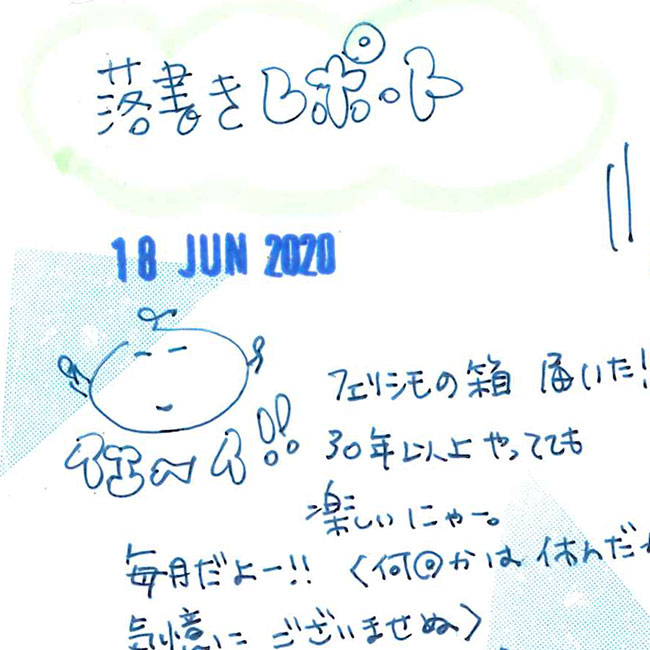 落書きレポート
18 JUN 2020
イエ〜イ!!
フェリシモの箱 届いた!
30年以上 やってても
楽しいにゃー。
毎月だよー!! 〈何回かは 休んだ
気憶に ございませぬ〉